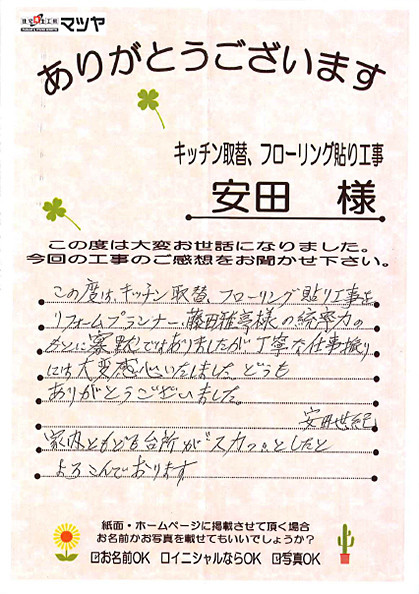 マツヤ
ありがとうございます
キッチン取替、フローリング貼り工事
安田 様
この度は大変お世話になりました。
今回の工事のご感想をお聞かせ下さい。
この度は、キッチン取替、フローリング貼り工事を
リフォームプランナー、藤田雅亭様の統率力の
もとに寡黙ではありましたが丁寧な仕事振り
には大変感心いたしました どうも
ありがとうございました。
安田
家内ともども台所が"スカッ"としたと
よろこんでおります
紙面・ホームページに掲載させて頂く場合
お名前かお写真を載せてもいいでしょうか?
☑お名前OK ロイニシャルならOK ☑写真OK